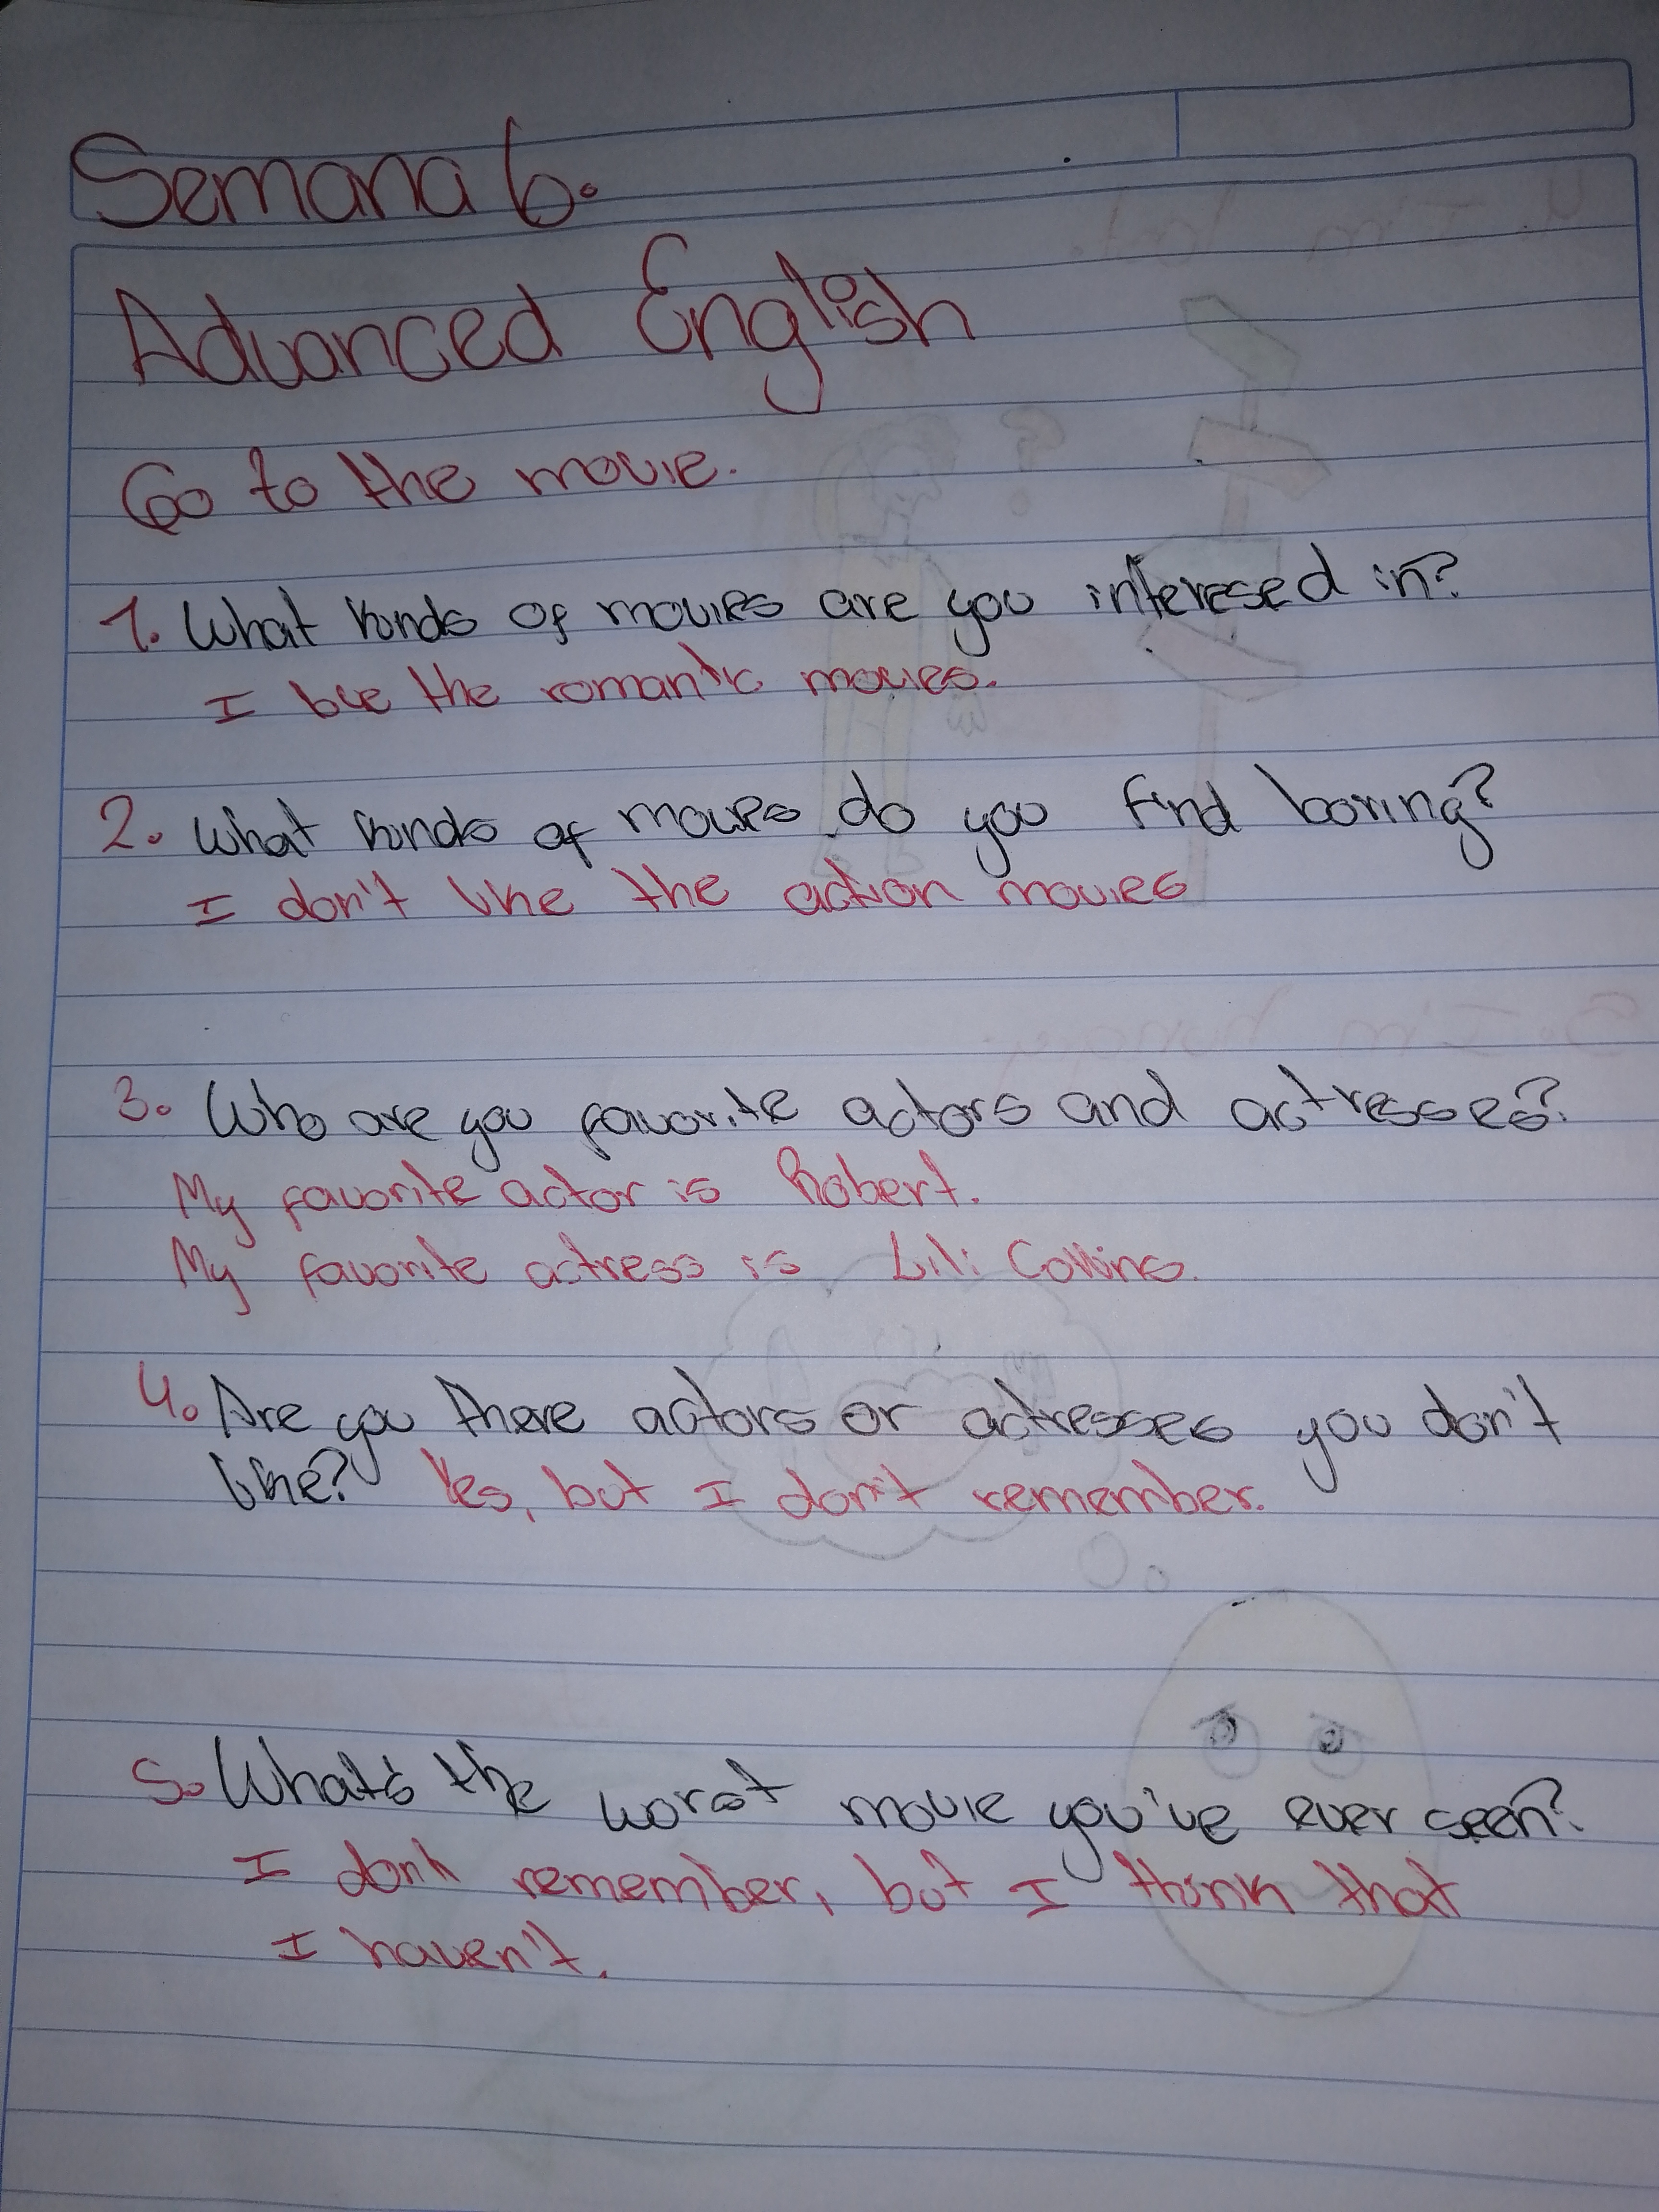 Semana 6.
Advanced English
Go to the movie.
1. What kinds of movies are you interesed in?
I like the romantic movies.
2. What kinds of movies do you find boring?
I don't like the action movies
3. Who are you favorite actors and actresses?
My favorite actor is Robert.
My favorite actress is Lili Collins.
4. Are you there actors or actresses you don't
like? Yes, but I don't remember.
5. What's the worst movie you've ever seen?
I don't remember, but I think that
I haven't.